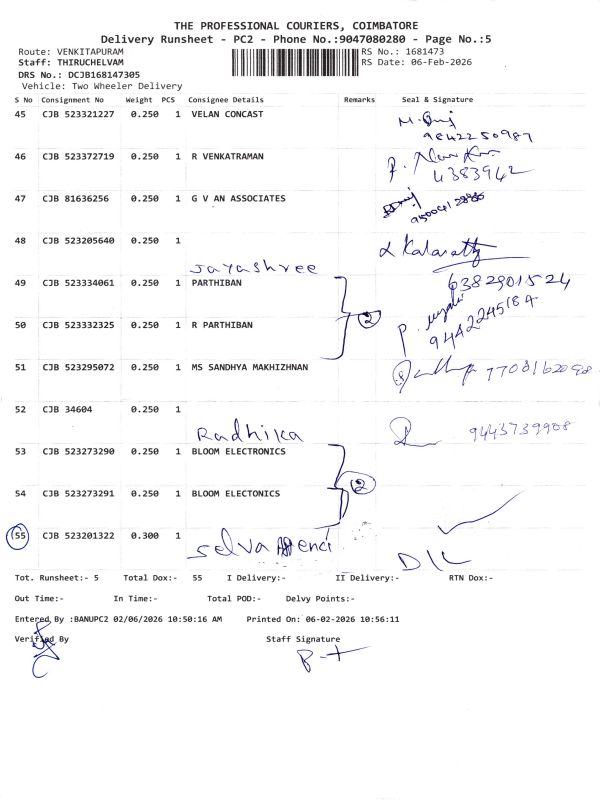 THE PROFESSIONAL COURIERS, COIMBATORE
Delivery Runsheet - PC2 - Phone No.:9047080280 - Page No.:5
Route: VENKITAPURAM RS No.: 1681473
Staff: THIRUCHELVAM RS Date: 06-Feb-2026
DRS No.: DCJB168147305
Vehicle: Two Wheeler Delivery
S No Consignment No Weight PCS Consignee Details Remarks Seal & Signature
45 CJB 523321227 0.250 1 VELAN CONCAST
9842250987
46 CJB 523372719 0.250 1 R VENKATRAMAN
4383942
47 CJB 81636256 0.250 1 G V AN ASSOCIATES
48 CJB 523205640 0.250 1
Jayashree
49 CJB 523334061 0.250 1 PARTHIBAN 6382901524
2
50 CJB 523332325 0.250 1 R PARTHIBAN 9442245184
51 CJB 523295072 0.250 1 MS SANDHYA MAKHIZHNAN
52 CJB 34604 0.250 1
Radhika 9443739908
53 CJB 523273290 0.250 1 BLOOM ELECTRONICS
2
54 CJB 523273291 0.250 1 BLOOM ELECTONICS
55 CJB 523201322 0.300 1
Selva
D/L
Tot. Runsheet:- 5 Total Dox:- 55 I Delivery:- II Delivery:- RTN Dox:-
Out Time:- In Time:- Total POD:- Delvy Points:-
Entered By :BANUPC2 02/06/2026 10:50:16 AM Printed On: 06-02-2026 10:56:11
Verified By Staff Signature